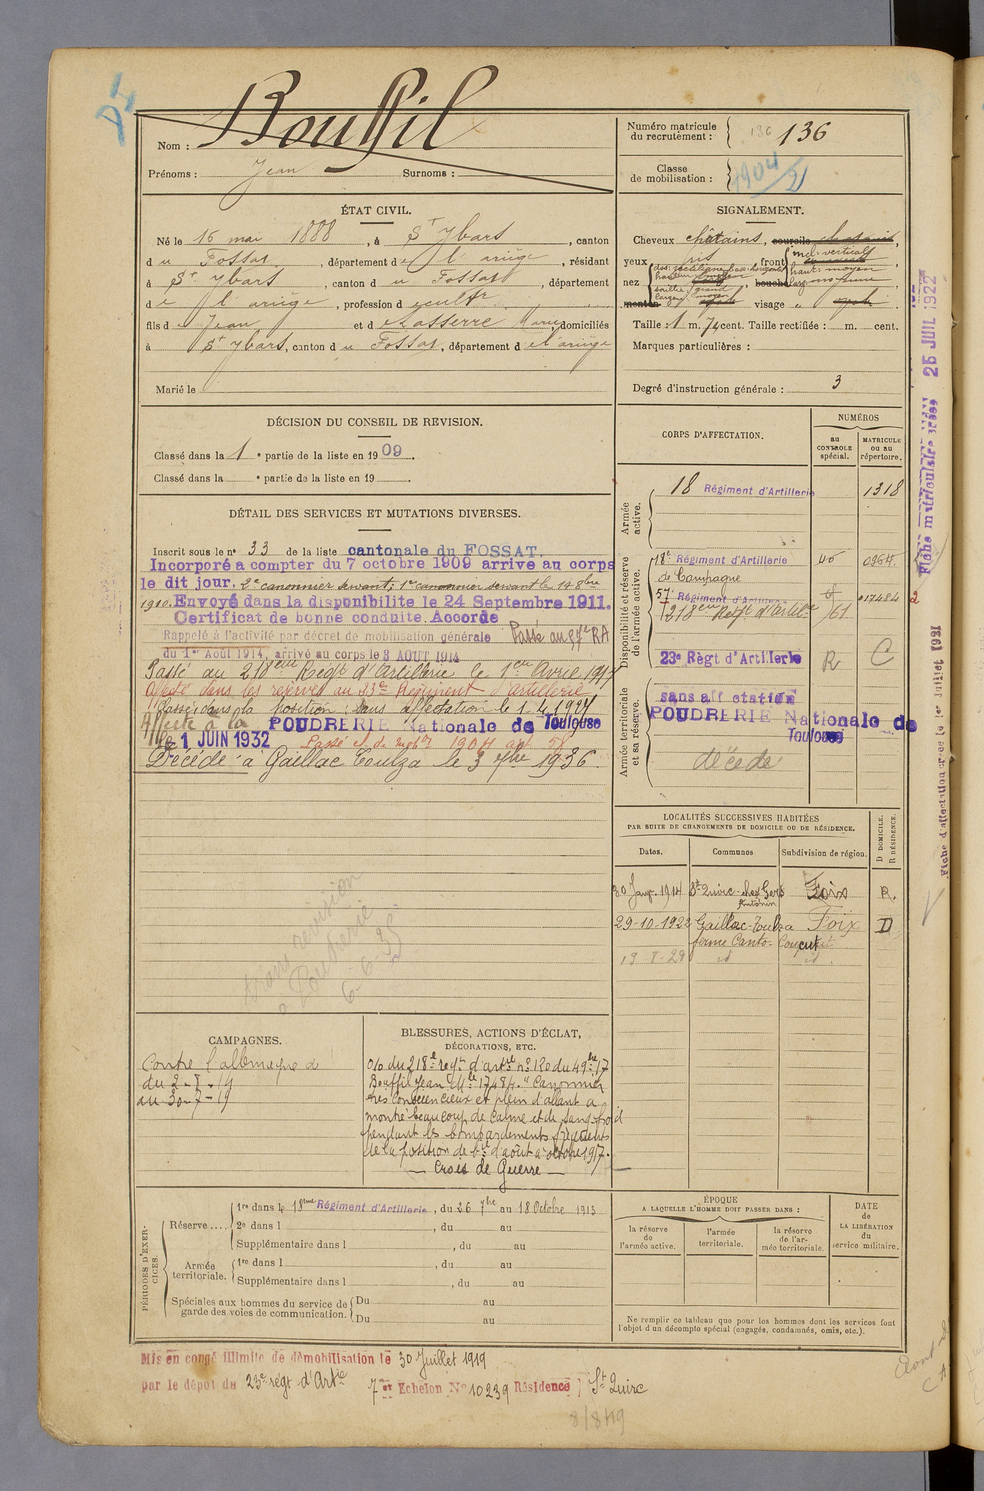 Bouffil
Nom :
Prénoms : Jean Surnoms :
Numéro matricule
du recrutement : 136 136
Classe
de mobilisation : 1904/21
ÉTAT CIVIL.
Né le 16 mai 1888, à St Ybars, canton
du Fossat, département de l'ariège, résidant
à St Ybars, canton du Fossat, département
de l'ariège, profession de cultr
fils de Jean et de Lasserre Marie, domiciliés
à St Ybars, canton du Fossat, département de l'ariège
Marié le
SIGNALEMENT.
Cheveux châtains, sourcils chatains,
yeux gris front incl: vertical
haut: moyen
larg: moyenne
nez dos: rectiligne base: horizontale
hauteur: moyen
saillie: grand
largeur: moyen
bouche
menton visage
Taille : 1 m. 74 cent. Taille rectifiée : m. cent.
Marques particulières :
Degré d'instruction générale : 3
DÉCISION DU CONSEIL DE REVISION.
Classé dans la 1e partie de la liste en 1909.
Classé dans la e partie de la liste en 19
DÉTAIL DES SERVICES ET MUTATIONS DIVERSES.
Inscrit sous le no 33 de la liste cantonale du FOSSAT.
Incorporé à compter du 7 octobre 1909 arrivé au corps
le dit jour. 2e canonnier servant; 1er canonnier servant le 14 8bre
1910. Envoyé dans la disponibilité le 24 Septembre 1911.
Certificat de bonne conduite Accordé
Rappelé à l'activité par décret de mobilisation générale Passé au 57e RA
du 1er Août 1914, arrivé au corps le 3 AOUT 1914
Passé au 218eme Regt d'Artillerie le 1er Avril 1917
Affecté dans les réserves au 23e Régiment d'Artillerie
Classé dans la position sans affectation le 1.4.1927
Affecté à la POUDRERIE Nationale de Toulouse
le 1 JUIN 1932
Décédé à Gaillac Toulza le 3 1936
CORPS D'AFFECTATION.
NUMÉROS
au
CONTROLE
spécial.
MATRICULE
ou au
répertoire.
Armée
active.
18 Régiment d'Artillerie 1318
Disponibilité et réserve
de l'armée active.
18e Régiment d'Artillerie
de Campagne
57e Régiment d'Artillerie 017484
218eme Regt d'Artilrie /61
23e Règt d'Artillerie R C
Armée territoriale
et sa réserve.
sans affectation
POUDRERIE Nationale de
Toulouse
décédé
LOCALITÉS SUCCESSIVES HABITÉES
PAR SUITE DE CHANGEMENTS DE DOMICILE OU DE RÉSIDENCE.
Dates. Communes Subdivision de région. D DOMICILE. R RÉSIDENCE.
30 Janv. 1914 St Quirc - chez Gers Foix R.
29-10-1922 Gaillac-Toulza Foix D
ferme Canto-Coucut
id id
trans revision
a Poudrerie
6-6-32
CAMPAGNES.
Contre l'allemagne
du 2-8-14
au 30-7-19
BLESSURES, ACTIONS D'ÉCLAT,
DÉCORATIONS, ETC.
O/o du 218e regt d'artie no 120 du 4 9bre 17
Bouffil Jean Mle 17484. "Canonnier
très consciencieux et plein d'allant a
montré beaucoup de calme et de sang-froid
pendant les bombardements fréquents
de la position de bie d'août à octobre 1917.
— Croix de Guerre —
PÉRIODES D'EXERCICES.
Réserve.... 1re dans le 18eme Régiment d'Artillerie, du 26 7bre au 18 Octobre 1913
2e dans l , du au
Supplémentaire dans l , du au
Armée
territoriale. 1re dans l , du au
Supplémentaire dans l , du au
Spéciales aux hommes du service de
garde des voies de communication. Du au
Du au
ÉPOQUE
A LAQUELLE L'HOMME DOIT PASSER DANS :
la réserve
de
l'armée active.
l'armée
territoriale.
la réserve
de l'armée territoriale.
DATE
de
LA LIBÉRATION
du
service militaire.
Ne remplir ce tableau que pour les hommes dont les services font
l'objet d'un décompte spécial (engagés, condamnés, omis, etc.).
Mis en congé illimité de démobilisation le 30 Juillet 1919
par le dépôt du 23e régt d'Artie 7e Echelon No 10239 Résidence St Quirc
8/8/19
Fiche matriculaire créée 25 JUIL 1922
Fiche d'affectation créée le 1er Juillet 1921